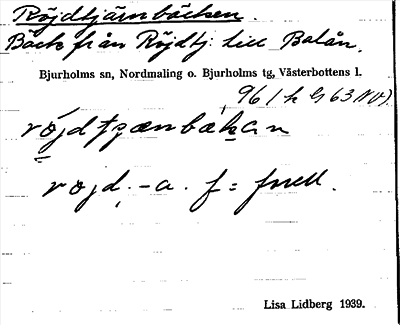 Röjdtjärnbäcken.
Bäck från Röjdtj. till Balån.
Bjurholms sn, Nordmaling o. Bjurholms tg, Västerbottens l.
96 1 k G 63 NV).
röjdtjænbækan
röjd. -a. f = forell.
Lisa Lidberg 1939.